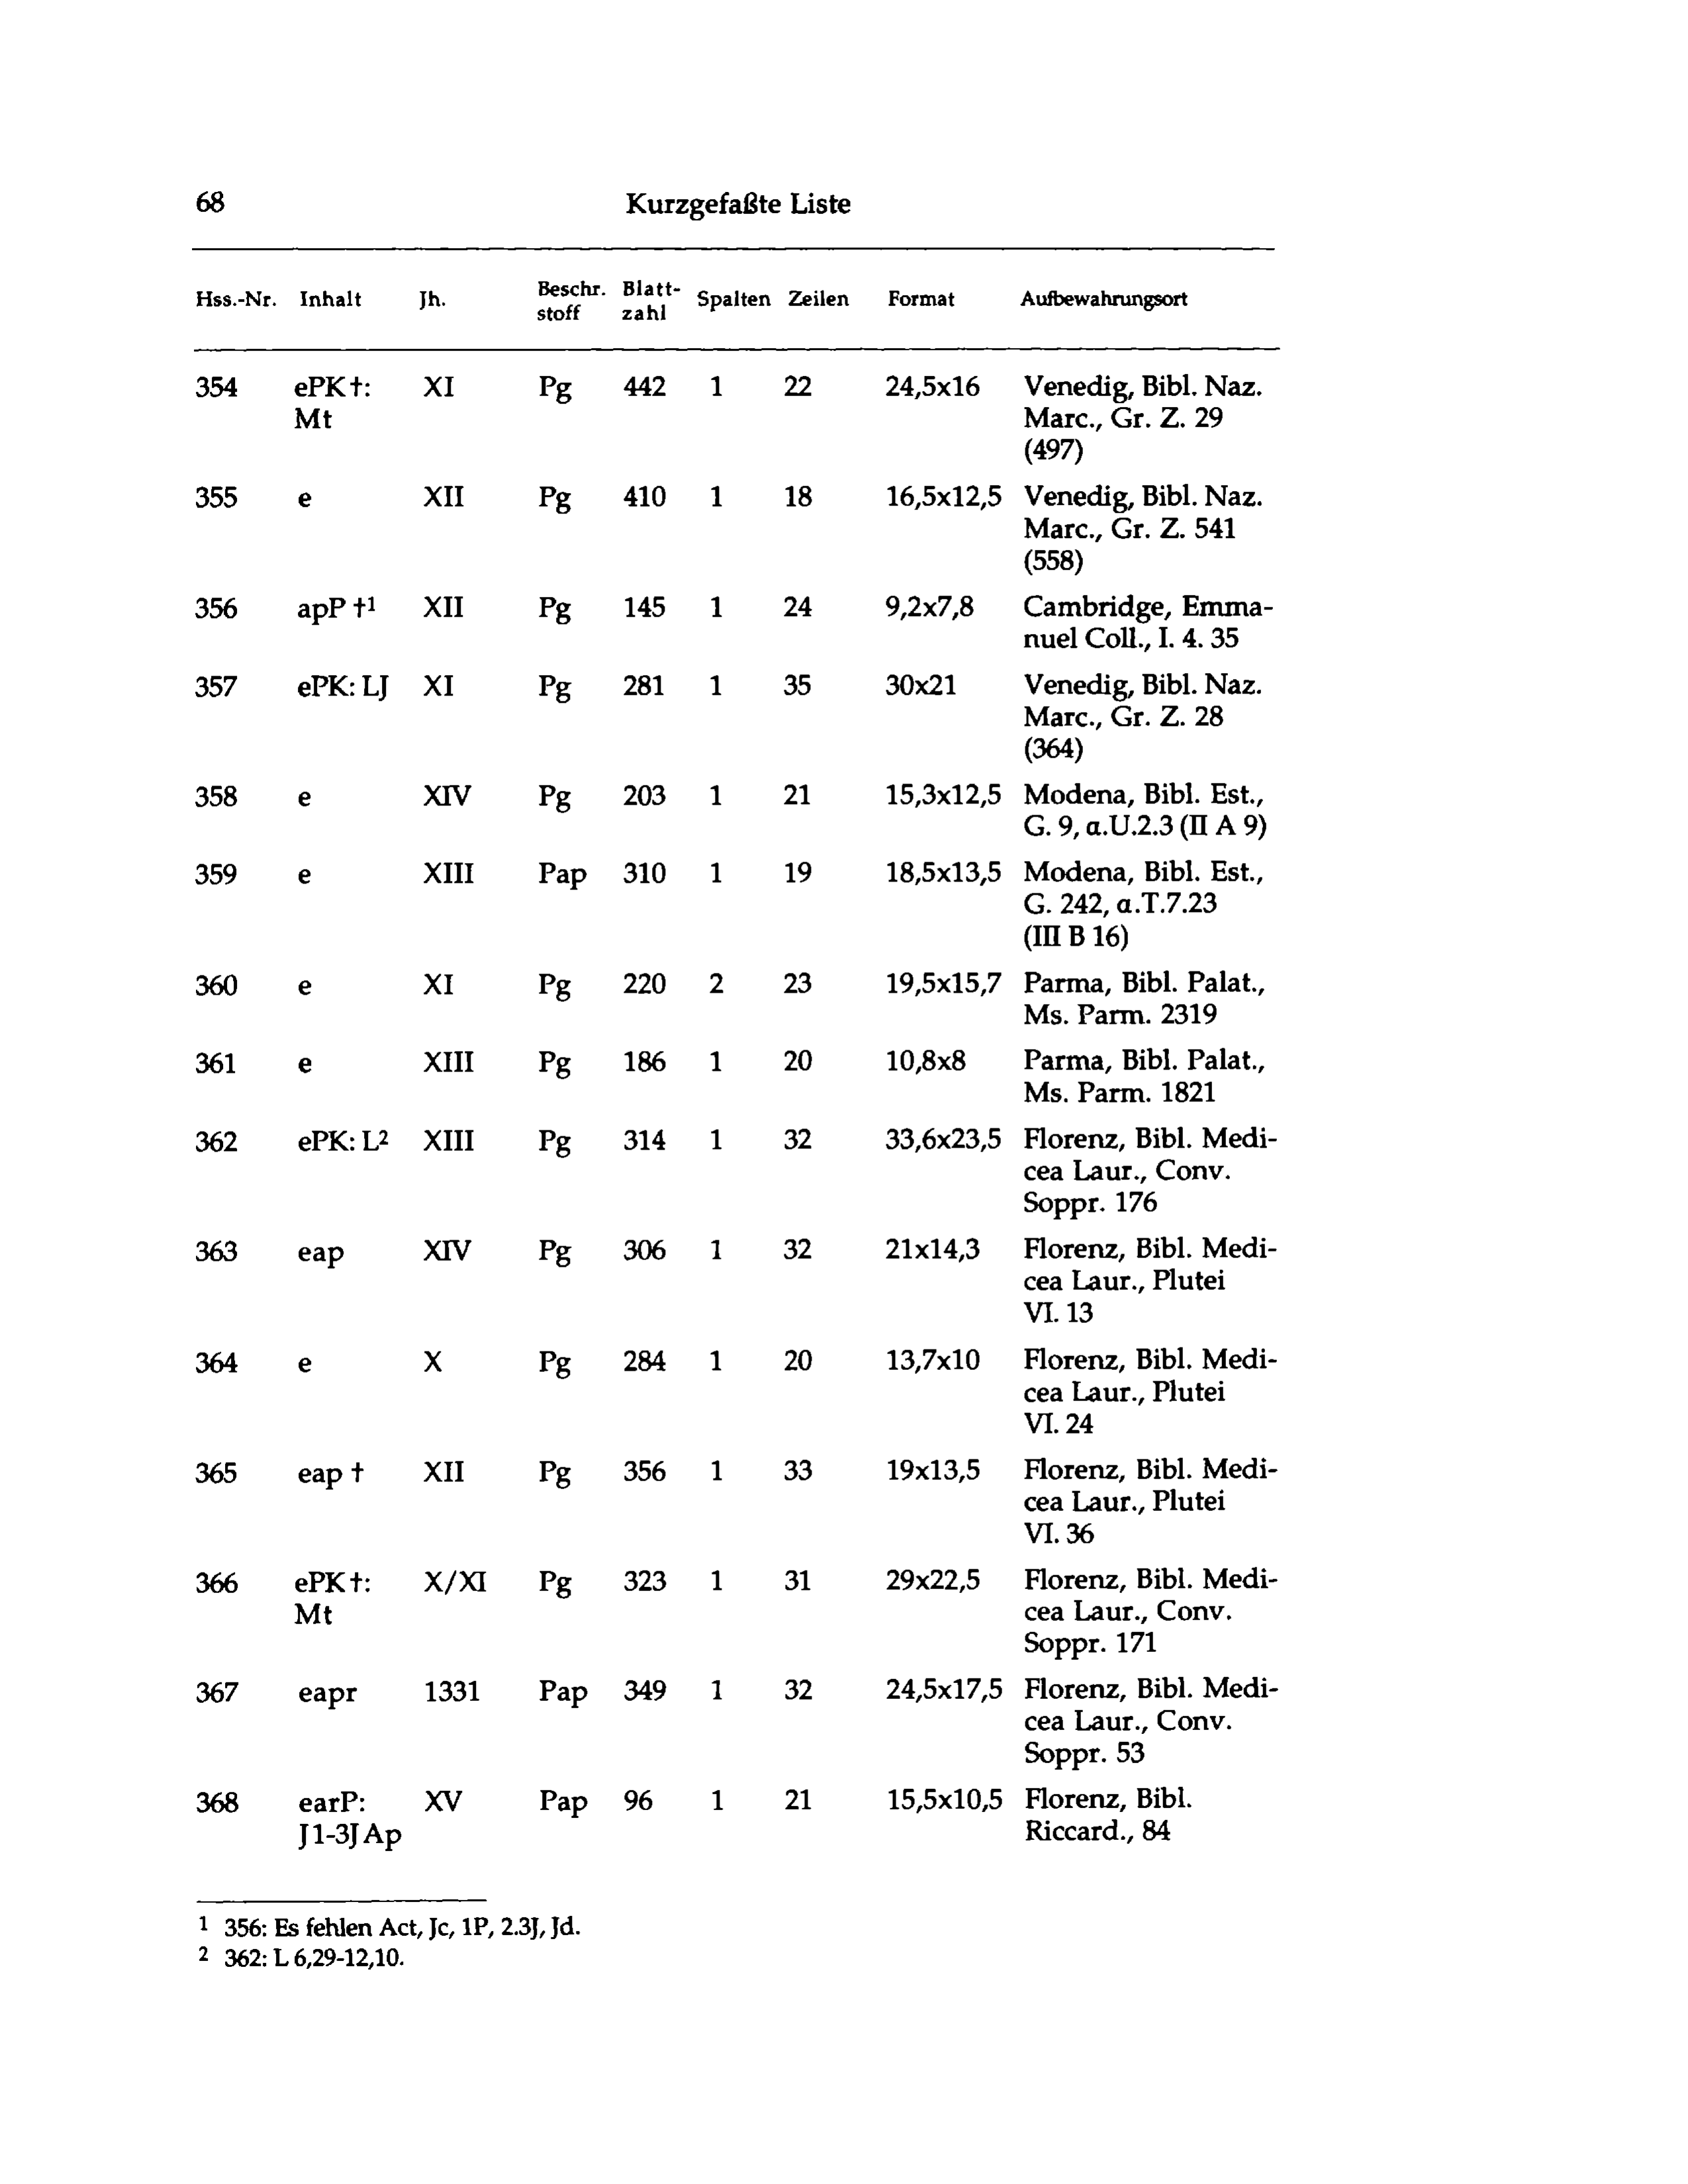 68 Kurzgefaßte Liste
Hss.-Nr. Inhalt Jh. Beschr. stoff Blatt- zahl Spalten Zeilen Format Aufbewahrungsort
354 ePK†: XI Pg 442 1 22 24,5x16 Venedig, Bibl. Naz.
Mt Marc., Gr. Z. 29
(497)
355 e XII Pg 410 1 18 16,5x12,5 Venedig, Bibl. Naz.
Marc., Gr. Z. 541
(558)
356 apP †¹ XII Pg 145 1 24 9,2x7,8 Cambridge, Emma-
nuel Coll., I. 4. 35
357 ePK: LJ XI Pg 281 1 35 30x21 Venedig, Bibl. Naz.
Marc., Gr. Z. 28
(364)
358 e XIV Pg 203 1 21 15,3x12,5 Modena, Bibl. Est.,
G. 9, α.U.2.3 (II A 9)
359 e XIII Pap 310 1 19 18,5x13,5 Modena, Bibl. Est.,
G. 242, α.T.7.23
(III B 16)
360 e XI Pg 220 2 23 19,5x15,7 Parma, Bibl. Palat.,
Ms. Parm. 2319
361 e XIII Pg 186 1 20 10,8x8 Parma, Bibl. Palat.,
Ms. Parm. 1821
362 ePK: L² XIII Pg 314 1 32 33,6x23,5 Florenz, Bibl. Medi-
cea Laur., Conv.
Soppr. 176
363 eap XIV Pg 306 1 32 21x14,3 Florenz, Bibl. Medi-
cea Laur., Plutei
VI. 13
364 e X Pg 284 1 20 13,7x10 Florenz, Bibl. Medi-
cea Laur., Plutei
VI. 24
365 eap † XII Pg 356 1 33 19x13,5 Florenz, Bibl. Medi-
cea Laur., Plutei
VI. 36
366 ePK†: X/XI Pg 323 1 31 29x22,5 Florenz, Bibl. Medi-
Mt cea Laur., Conv.
Soppr. 171
367 eapr 1331 Pap 349 1 32 24,5x17,5 Florenz, Bibl. Medi-
cea Laur., Conv.
Soppr. 53
368 earP: XV Pap 96 1 21 15,5x10,5 Florenz, Bibl.
J1-3J Ap Riccard., 84
¹ 356: Es fehlen Act, Jc, 1P, 2.3J, Jd.
² 362: L 6,29-12,10.